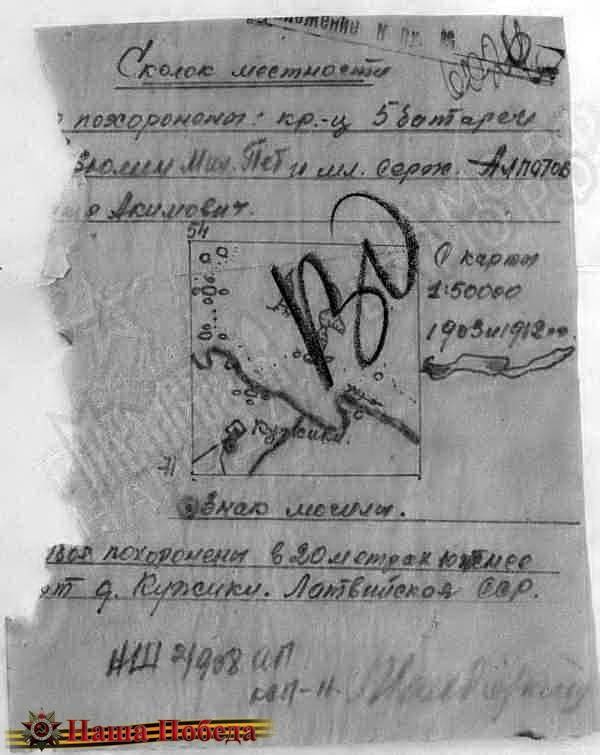 Сколок местности
похоронены: кр.-ц 5 батареи
Мих. Пет и мл. серж. Алпатов
Акимович.
54
С карты
1:50000
1903 и 1912 гг.
Кужики.
71
Знак могилы.
похоронены в 20 метрах южнее
от д. Кужики. Латвийской ССР.
НШ 2/908 АП
кап-н
Наша Победа